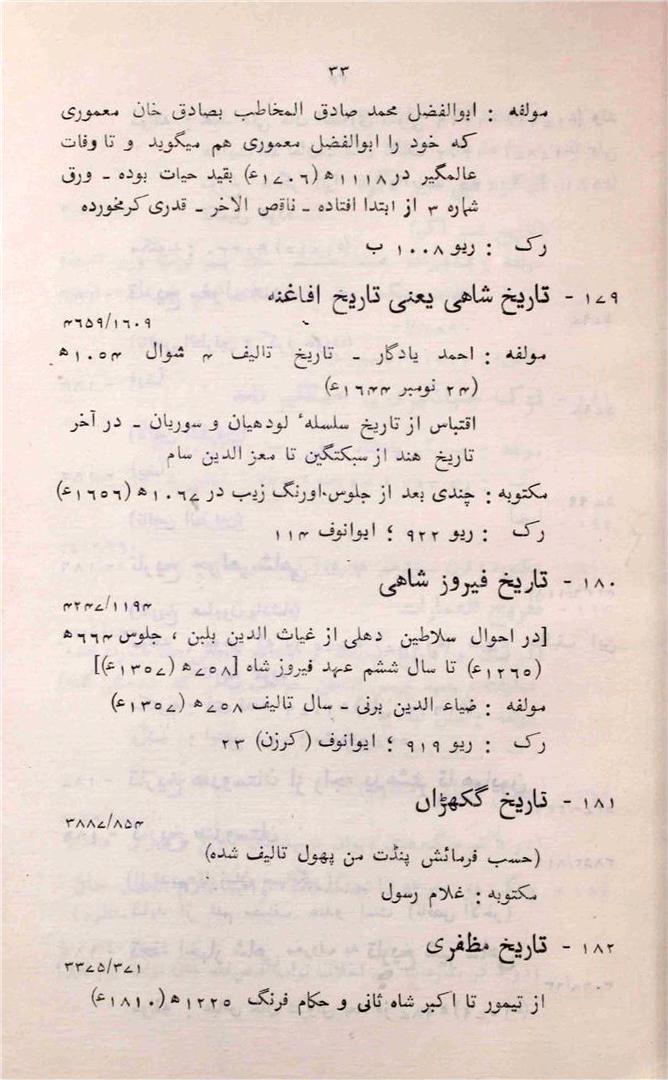 ۳۳
مولفه : ابوالفضل محمد صادق المخاطب بصادق خان معموری
که خود را ابوالفضل معموری هم میگوید و تا وفات
عالمگیر در ۱۱۱۸ھ (۱۷۰۶ع) بقید حیات بوده ـ ورق
شماره ۳ از ابتدا افتاده ـ ناقص الاخر ـ قدری کرمخورده
رک : ریو ۱۰۰۸ ب
۱۷۹ - تاریخ شاهی یعنی تاریخ افاغنه
۴۶۵۹/۱۶۰۹
مولفه : احمد یادگار ـ تاریخ تالیف ۴ شوال ۱۰۵۴ھ
(۲۴ نومبر ۱۶۴۴ع)
اقتباس از تاریخ سلسلهٔ لودهیان و سوریان ـ در آخر
تاریخ هند از سبکتگین تا معز الدین سام
مکتوبه : چندی بعد از جلوس اورنگ زیب در ۱۰۶۷ھ (۱۶۵۶ع)
رک : ریو ۹۲۲ ؛ ایوانوف ۱۱۴
۱۸۰ - تاریخ فیروز شاهی
۴۲۴۷/۱۱۹۴
[در احوال سلاطین دهلی از غیاث الدین بلبن ، جلوس ۶۶۴ھ
(۱۲۶۵ع) تا سال ششم عهد فیروز شاه [۷۵۸ھ (۱۳۵۷ع)]
مولفه : ضیاء الدین برنی ـ سال تالیف ۷۵۸ھ (۱۳۵۷ع)
رک : ریو ۹۱۹ ؛ ایوانوف (کرزن) ۲۳
۱۸۱ - تاریخ گکھڑاں
۳۸۸۷/۸۵۴
(حسب فرمائش پنڈت من پهول تالیف شده)
مکتوبه : غلام رسول
۱۸۲ - تاریخ مظفری
۳۳۷۵/۳۷۱
از تیمور تا اکبر شاه ثانی و حکام فرنگ ۱۲۲۵ھ (۱۸۱۰ع)